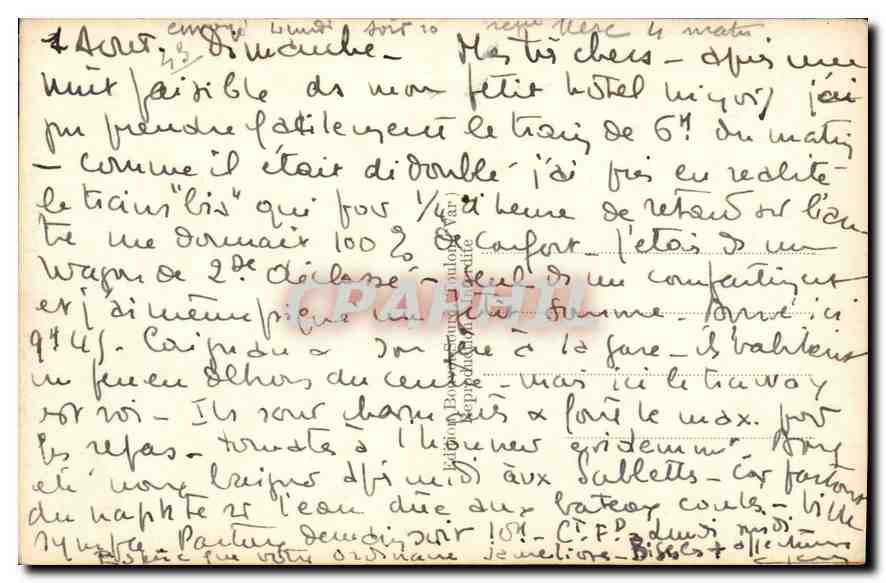 envoyé Lundi soir 10 reçu Merc 4 matin
1 Aout. 43 Dimanche - Mes très chers - après une
nuit paisible ds mon petit hôtel j'ai
pu prendre facilement le train de 6h du matin
- comme il était dédoublé j'ai pris en realité
le train "bis" qui pour 1/4 d'heure de retard sur l'au-
tre me donnait 100% de confort - j'etais ds un
wagon de 2de déclassé - seul ds un compartiment
et j'ai même piqué un petit somme - Arrivé ici
9h45 - son père à la gare - ils habitent
un peu en dehors du centre - mais ici le tramway
est roi - Ils sont charmants & font le max. pour
les repas - tomates à l'honneur evidemmt
été nous baigner après midi aux Sablettes - car partout
du naphte sr l'eau dûe aux bateaux coulés - Ville
sympa Partirai demain soir 10h - Lundi midi -
que votre ordinaire s'améliore - Bises +
Edition Bouvet-Sourd, Toulon (Var)
Reproduction Interdite
CPAPHIL